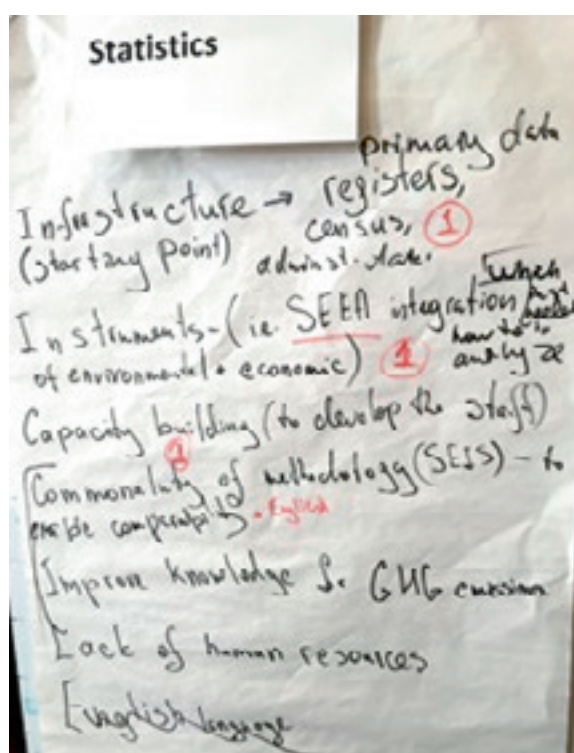 Statistics
primary data
Infrastructure → registers,
(starting point) census, 1
administ. data.
Instruments - (ie. SEEA integration
of environmental + economic) 1
when
how to
analyze
Capacity building (to develop the staff)
1
Commonality of methodology (SEIS) - to
enable comparability - English
Improve knowledge for GHG emission
Lack of human resources
English language